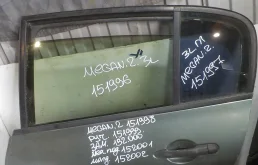 MEGAN 2 3L
151996
3L П
MEGAN 2.
151997
MEGAN 2 151998
151999
ЗАМ. 152000
152001
152002